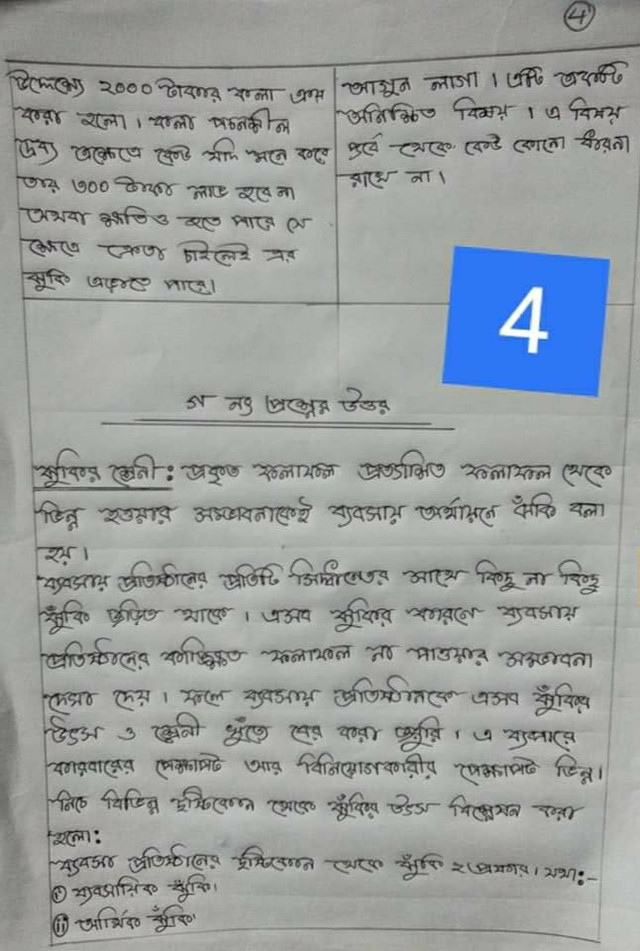 4
উদ্দেশ্যে ২০০০ টাকার কলা ক্রয়
করা হলো। কলা পচনশীল
দ্রব্য এক্ষেত্রে কেউ যদি মনে করে
তার ৩০০ টাকা লাভ হবে না
অথবা ক্ষতিও হতে পারে সে
ক্ষেত্রে ক্রেতা চাইলেই এর
ঝুঁকি এড়াতে পারে।
আগুন লাগা। এটি একটি
অনিশ্চিত বিষয়। এ বিষয়ে
পূর্বে থেকে কেউ কোনো ধারনা
রাখে না।
4
গ নং প্রশ্নের উত্তর
ঝুঁকির শ্রেনী: প্রকৃত ফলাফল প্রত্যাশিত ফলাফল থেকে
ভিন্ন হওয়ার সম্ভাবনাকেই ব্যবসায় অর্থায়নে ঝুঁকি বলা
হয়।
ব্যবসায় প্রতিষ্ঠানের প্রতিটি সিদ্ধান্তের সাথে কিছু না কিছু
ঝুঁকি জড়িত থাকে। এসব ঝুঁকির কারণে ব্যবসায়
প্রতিষ্ঠানের কাঙ্ক্ষিত ফলাফল না পাওয়ার সম্ভাবনা
দেখা দেয়। ফলে ব্যবসায় প্রতিষ্ঠানকে এসব ঝুঁকির
উৎস ও শ্রেনী খুঁজে বের করা জরুরি। এ ব্যাপারে
কারবারের প্রেক্ষাপট আর বিনিয়োগকারীর প্রেক্ষাপট ভিন্ন।
নিচে বিভিন্ন দৃষ্টিকোন থেকে ঝুঁকির উৎস বিশ্লেষন করা
হলো:
ব্যবসা প্রতিষ্ঠানের দৃষ্টিকোন থেকে ঝুঁকি ২ প্রকার। যথা:-
i ব্যবসায়িক ঝুঁকি।
ii আর্থিক ঝুঁকি।